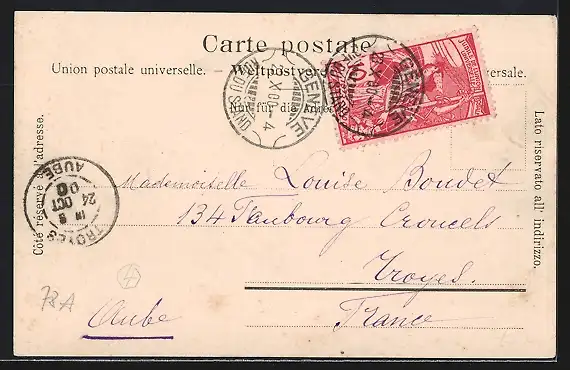 Carte postale
Union postale universelle. – Weltpostverein
Nur für die
Côté réservé à l'adresse.
Lato riservato all' indirizzo.
GENÈVE
GENÈVE
TROYES
AUBE
24 OCT 00
Mademoiselle Louise Boudet
134 Faubourg Croncels
Troyes.
France
Aube
4
78A